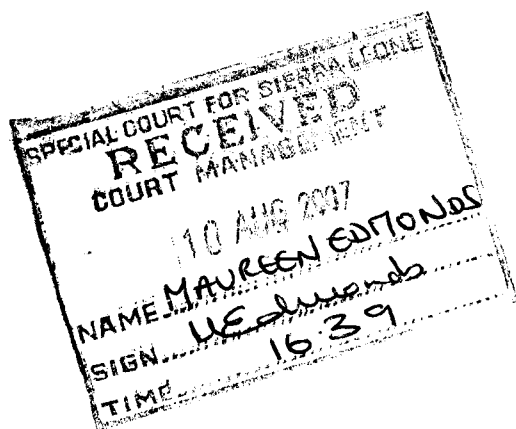 SPECIAL COURT FOR SIERRA LEONE
RECEIVED
COURT MANAGEMENT
10 AUG 2007
NAME MAUREEN EDMONDS
SIGN MEdmonds
TIME 16.39